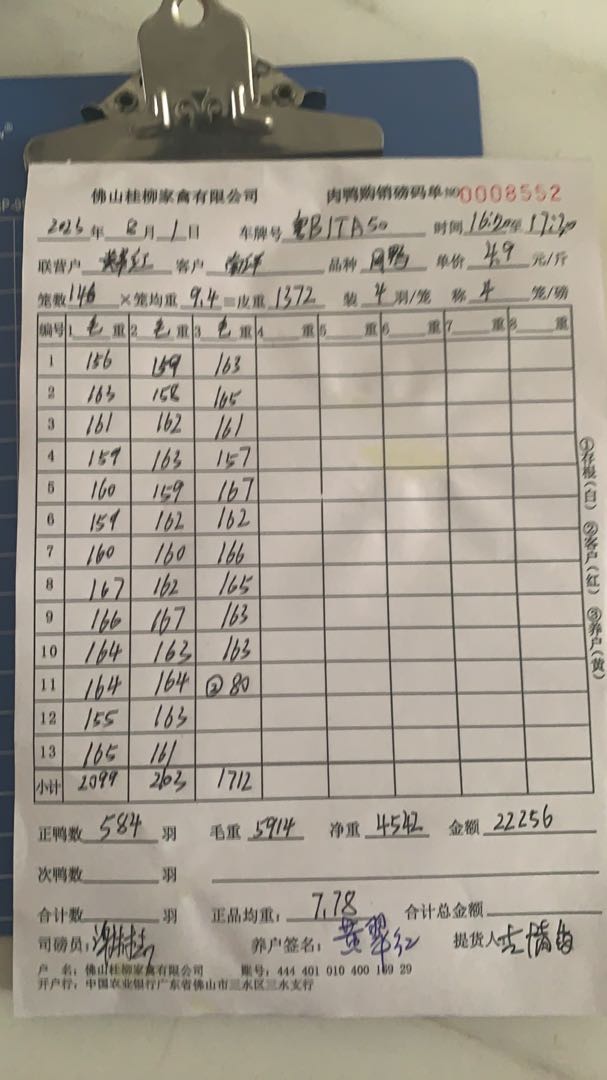 佛山桂柳家禽有限公司 肉鸭购销磅码单 NO 0008552
2025年8月1日 车牌号 粤BITA50 时间 16:20至17:30
联营户 黄翠红 客户 品种 肉鸭 单价 4.9 元/斤
笼数 146 ×笼均重 9.4 =皮重 1372 装 4 羽/笼 称 4 笼/磅
编号 1 毛重 2 毛重 3 毛重 4 重 5 重 6 重 7 重 8 重
1 156 159 163
2 163 158 165
3 161 162 161
4 159 163 157
5 160 159 167
6 159 162 162
7 160 160 166
8 167 162 165
9 166 167 163
10 164 163 163
11 164 164 ② 80
12 155 163
13 165 161
小计 2099 2103 1712
正鸭数 584 羽 毛重 5914 净重 4542 金额 22256
次鸭数 羽
合计数 羽 正品均重: 7.78 合计总金额
司磅员: 养户签名: 黄翠红 提货人
户 名: 佛山桂柳家禽有限公司 账号: 444 401 010 400 169 29
开户行: 中国农业银行广东省佛山市三水区三水支行
①存根(白) ②客户(红) ③养户(黄)